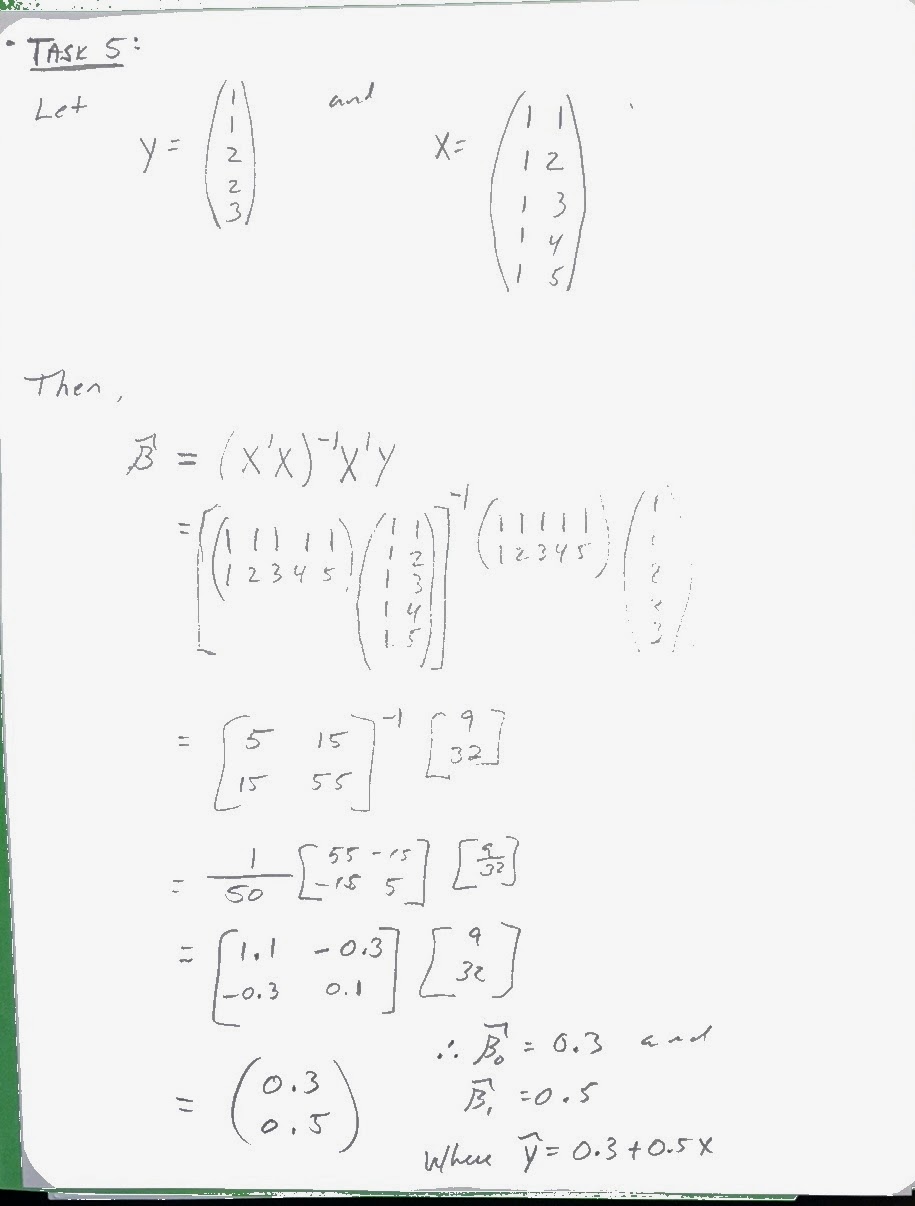 • TASK 5:
Let Y = (1 1 2 2 3) and X = (1 1
1 2
1 3
1 4
1 5)
Then,
B̂ = (X'X)⁻¹X'Y
= [(1 1 1 1 1
1 2 3 4 5) (1 1
1 2
1 3
1 4
1 5)]⁻¹ (1 1 1 1 1
1 2 3 4 5) (1 1 2 2 3)
= [5 15
15 55]⁻¹ [9
32]
= 1/50 [55 -15
-15 5] [9
32]
= [1.1 -0.3
-0.3 0.1] [9
32]
= (0.3
0.5)
∴ B̂₀ = 0.3 and
B̂₁ = 0.5
Where ŷ = 0.3 + 0.5x